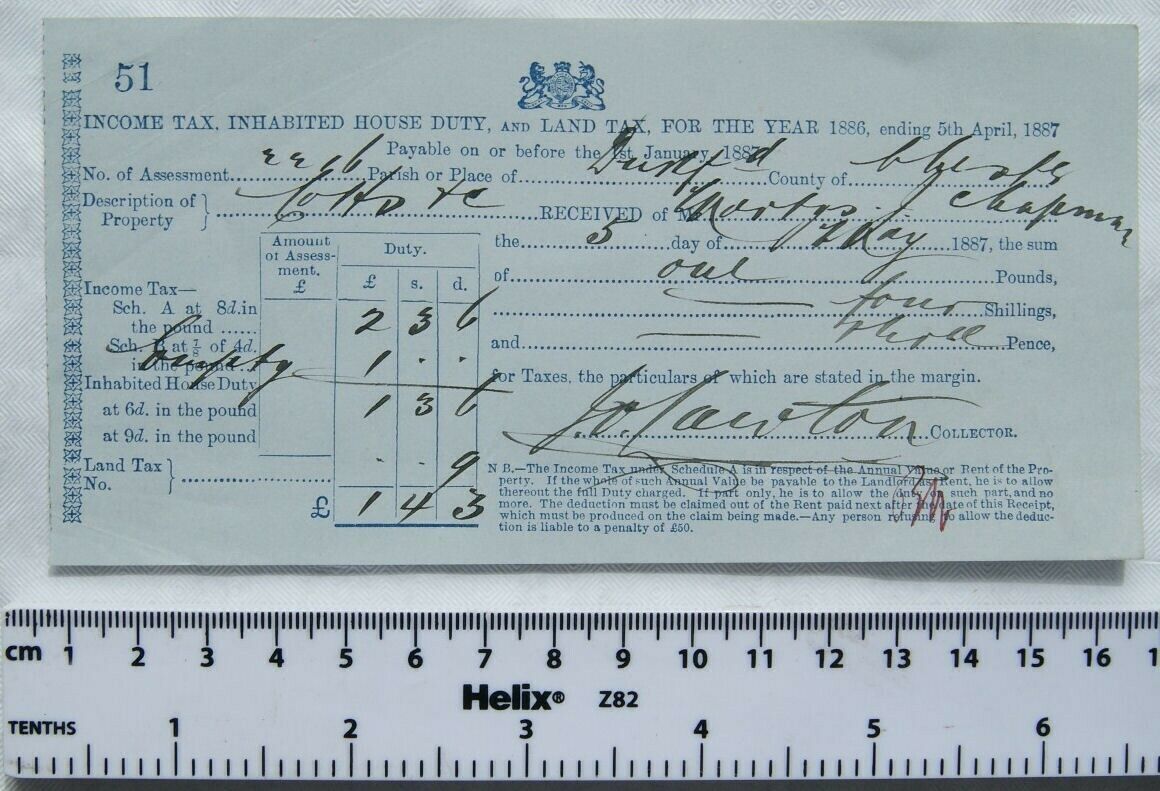 51
INCOME TAX, INHABITED HOUSE DUTY, AND LAND TAX, FOR THE YEAR 1886, ending 5th April, 1887
Payable on or before the 1st January, 1887
No. of Assessment Parish or Place of Dukfd County of Chester
Description of Property } RECEIVED of M Chapman
the 5 day of May 1887, the sum
of one Pounds,
four Shillings,
and three Pence,
for Taxes, the particulars of which are stated in the margin.
Lawton COLLECTOR.
Amount of Assessment. £ Duty. £ s. d.
Income Tax—
Sch. A at 8d. in the pound ...... 2 3 6
Sch. B at 1/8 of 4d. in the pound
Empty 1 . .
Inhabited House Duty
at 6d. in the pound 1 3 6
at 9d. in the pound
Land Tax } No. . . 9
£ 1 4 3
N B.—The Income Tax under Schedule A is in respect of the Annual Value or Rent of the Pro-
perty. If the whole of such Annual Value be payable to the Landlord as Rent, he is to allow
thereout the full Duty charged. If part only, he is to allow the duty on such part, and no
more. The deduction must be claimed out of the Rent paid next after the date of this Receipt,
which must be produced on the claim being made.—Any person refusing to allow the deduc-
tion is liable to a penalty of £50.
cm 1 2 3 4 5 6 7 8 9 10 11 12 13 14 15 16 1
Helix® Z82
TENTHS 1 2 3 4 5 6